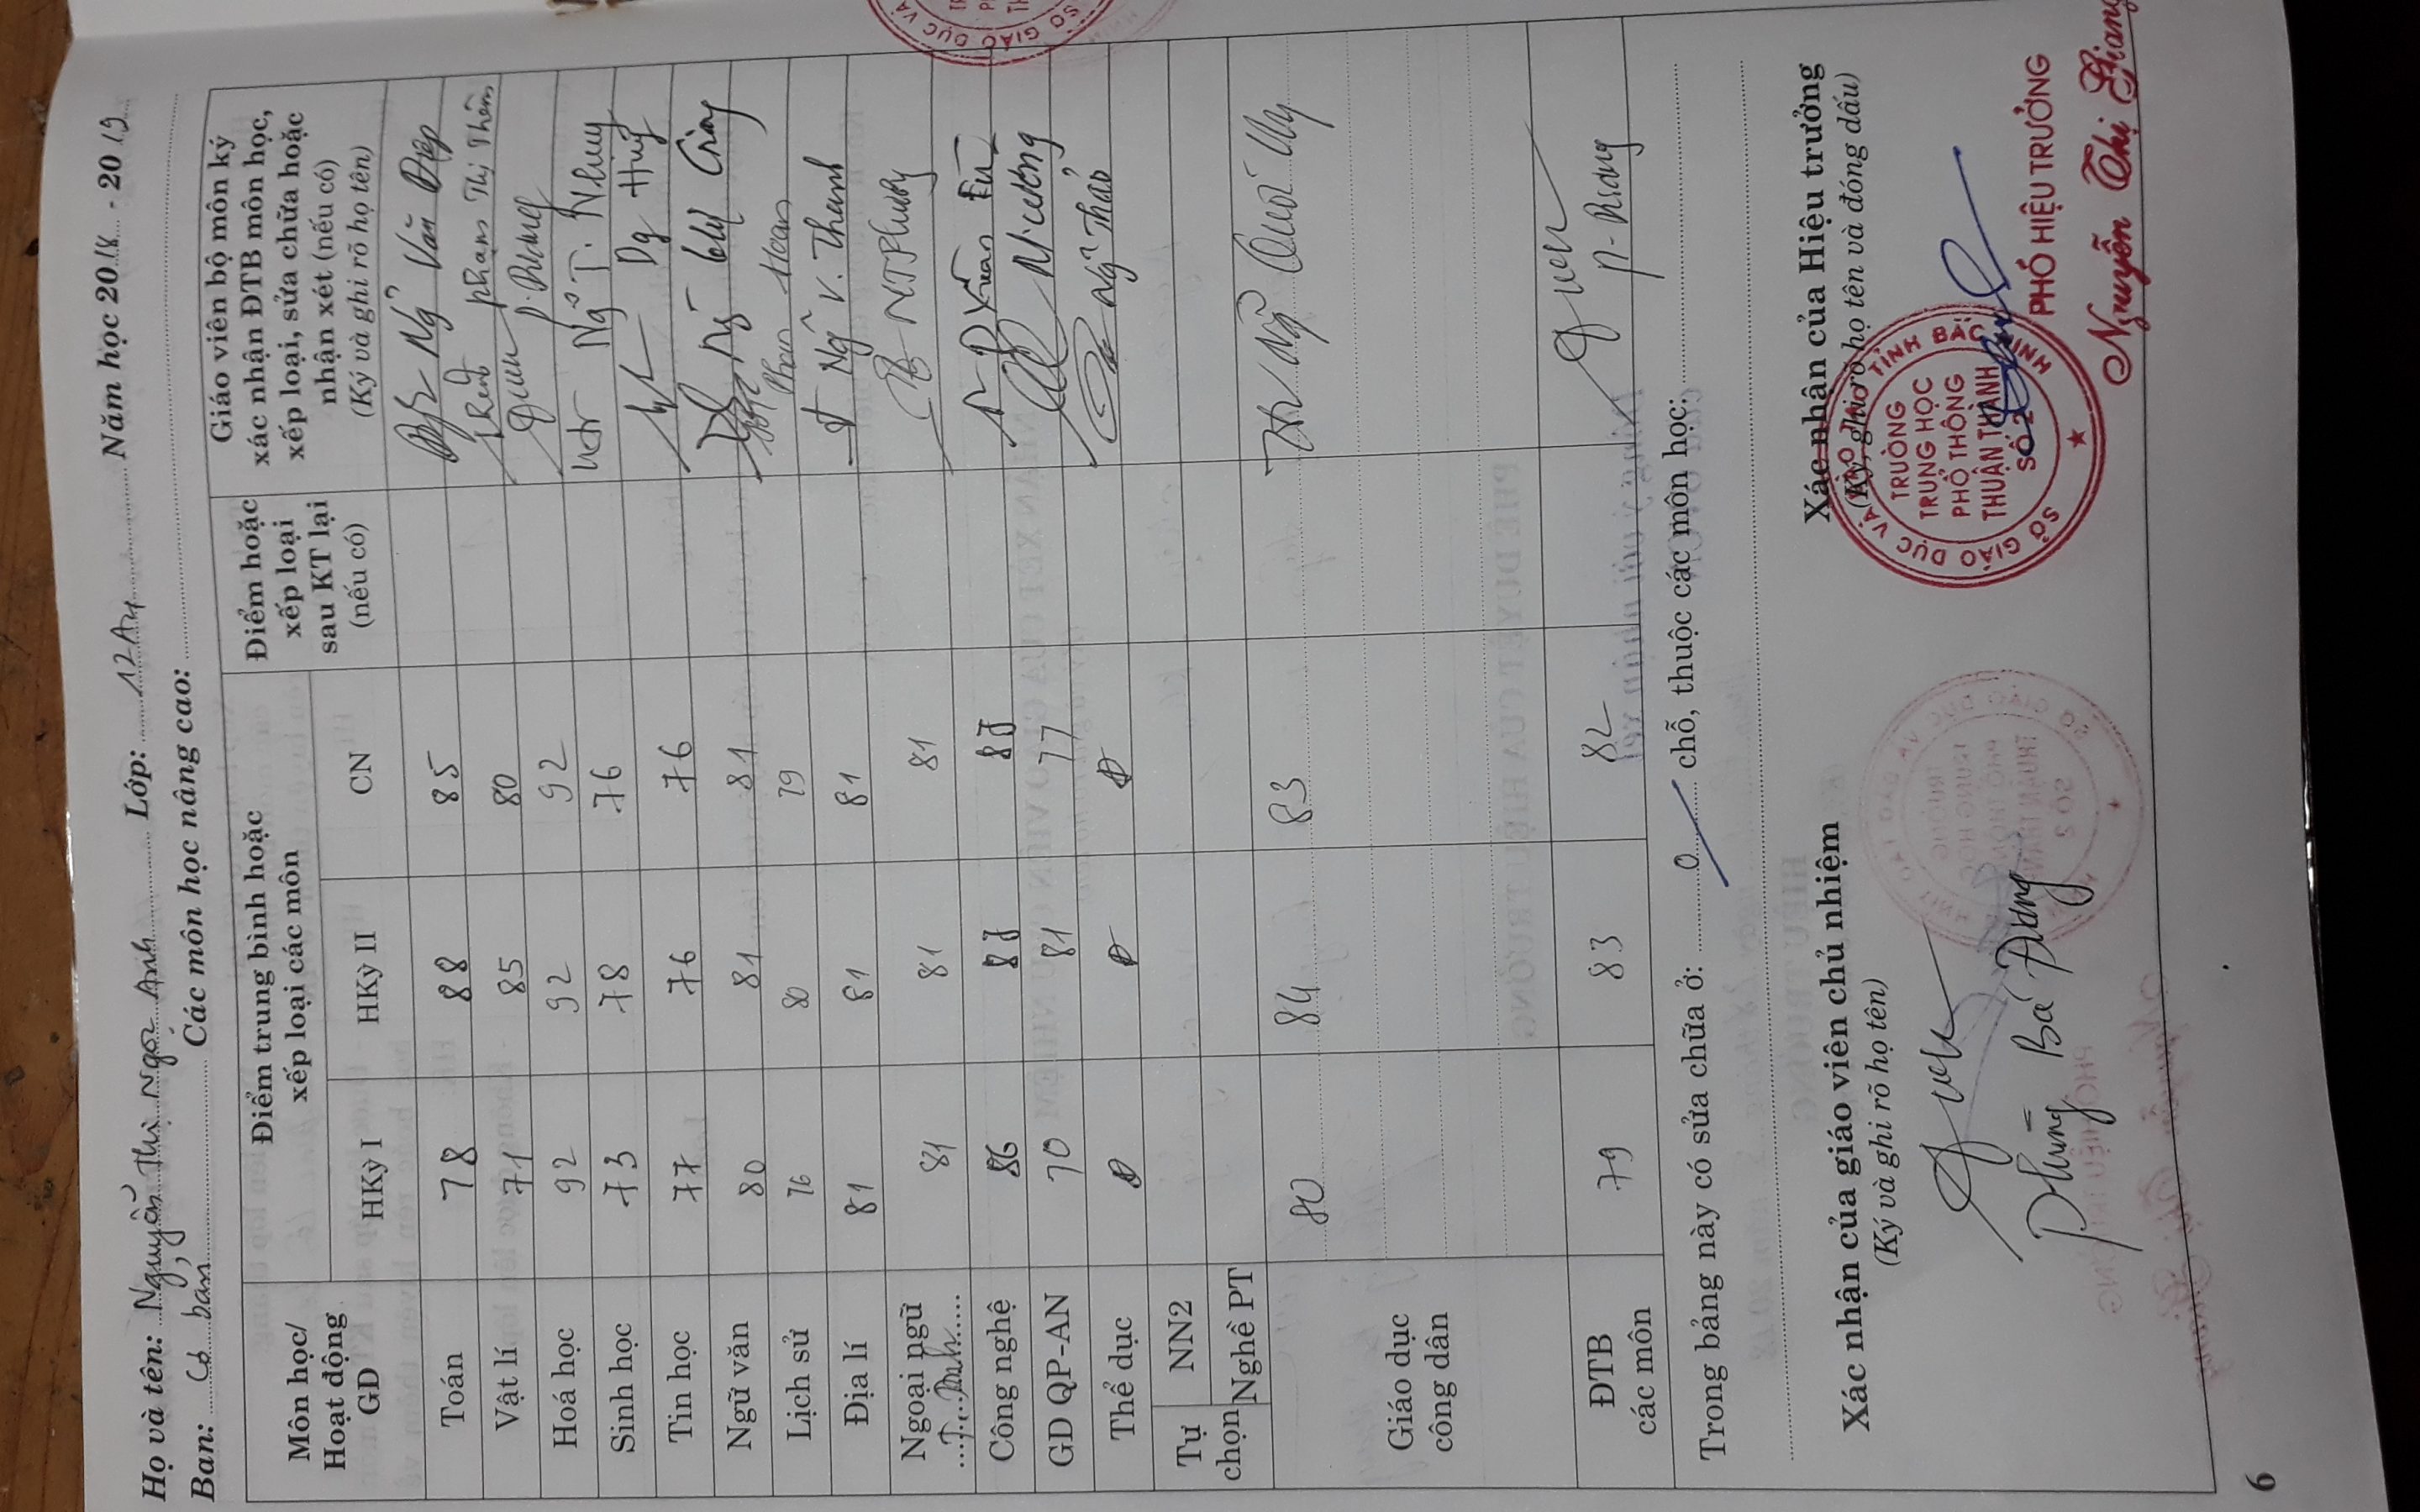 Họ và tên: Nguyễn Thị Ngọc Anh Lớp: 12A4 Năm học 2018 - 2019
Ban: Cơ bản Các môn học nâng cao:
Môn học/ Hoạt động GD
Điểm trung bình hoặc xếp loại các môn
Điểm hoặc xếp loại sau KT lại (nếu có)
Giáo viên bộ môn ký xác nhận ĐTB môn học, xếp loại, sửa chữa hoặc nhận xét (nếu có)
(Ký và ghi rõ họ tên)
HKỳ I HKỳ II CN
Toán 78 88 85 Ng Văn Điệp
Vật lí 71 85 80 Phạm Thị Thêm
Hoá học 92 92 92
Sinh học 73 78 76 Ngô T. Nhung
Tin học 77 76 76 Dg Huy
Ngữ văn 80 81 81
Lịch sử 76 80 79 Phan Hoan
Địa lí 81 81 81 Ngô V. Thanh
Ngoại ngữ T. Anh 81 81 81 NT Phương
Công nghệ 86
GD QP-AN 70 81 77 N. Cường
Thể dục Đ Đ Đ Ng Thảo
Tự chọn NN2
Nghề PT
Giáo dục công dân 80 84 83
ĐTB các môn 79 83 82
Trong bảng này có sửa chữa ở: 0 chỗ, thuộc các môn học:
Xác nhận của giáo viên chủ nhiệm Xác nhận của Hiệu trưởng
(Ký và ghi rõ họ tên) (Ký, ghi rõ họ tên và đóng dấu)
SỞ GIÁO DỤC VÀ ĐÀO TẠO TỈNH BẮC NINH
TRƯỜNG
TRUNG HỌC
PHỔ THÔNG
THUẬN THÀNH
SỐ 2
PHÓ HIỆU TRƯỞNG
Nguyễn Thị Giang
Phùng Bá Dương
6